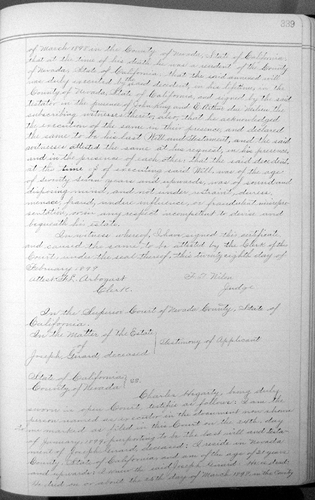 339
of March 1898 in the County of Nevada, State of California
that at the time of his death he was a resident of the County
of Nevada, State of California; that the said annexed will
was duly executed by the said decedent in his lifetime in the
County of Nevada, State of California, and signed by the said
testator in the presence of John and C. the
subscribing witnesses thereto; also, that he acknowledged
the execution of the same in their presence, and declared
the same to be his last Will and Testament, and the said
witnesses attested the same at his request, in his presence,
and in the presence of each other; that the said decedent,
at the time of executing said Will, was of the age
of years and upwards, was of sound and
disposing mind, and not under restraint, duress,
menace, fraud, undue influence, or fraudulent misrepre-
sentation, nor in any respect incompetent to devise and
bequeath his estate.
In witness whereof, I have signed this certificate
and caused the same to be attested by the Clerk of the
Court under the seal thereof, this twenty eighth day of
February 1899.
Attest F.L. Arbogast
Clerk.
F. T. Nilon
Judge.
In the Superior Court of Nevada County, State of
California.
In the Matter of the Estate
of
Joseph Girard deceased
Testimony of Applicant
State of California
County of Nevada
SS.
Charles Hegarty, being duly
sworn in open Court, testifies as follows: I am the
person named as executor in the document now shown
me marked as filed in this Court on the 24th day
of January, 1899, purporting to be the last will and testa-
ment of Joseph Girard, deceased; I reside in Nevada
County, State of California and am of the age of years
and upwards; I knew the said Joseph Girard. He is dead;
He died on or about the 25th day of March 1898, in the County